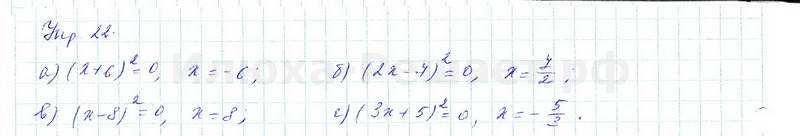 Упр 22.
а) (x+6)²=0, x=-6; б) (2x-7)²=0, x=7/2;
в) (x-8)²=0, x=8; г) (3x+5)²=0, x=-5/3.